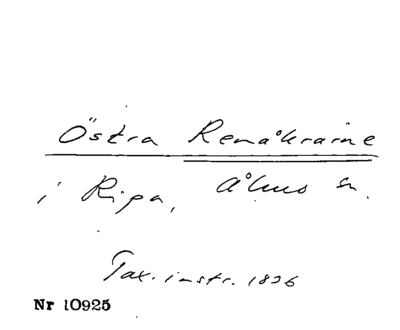 Östra Renåkrarne
i Ripa, Åhus sn.
Tax. instr. 1826
Nr 10925